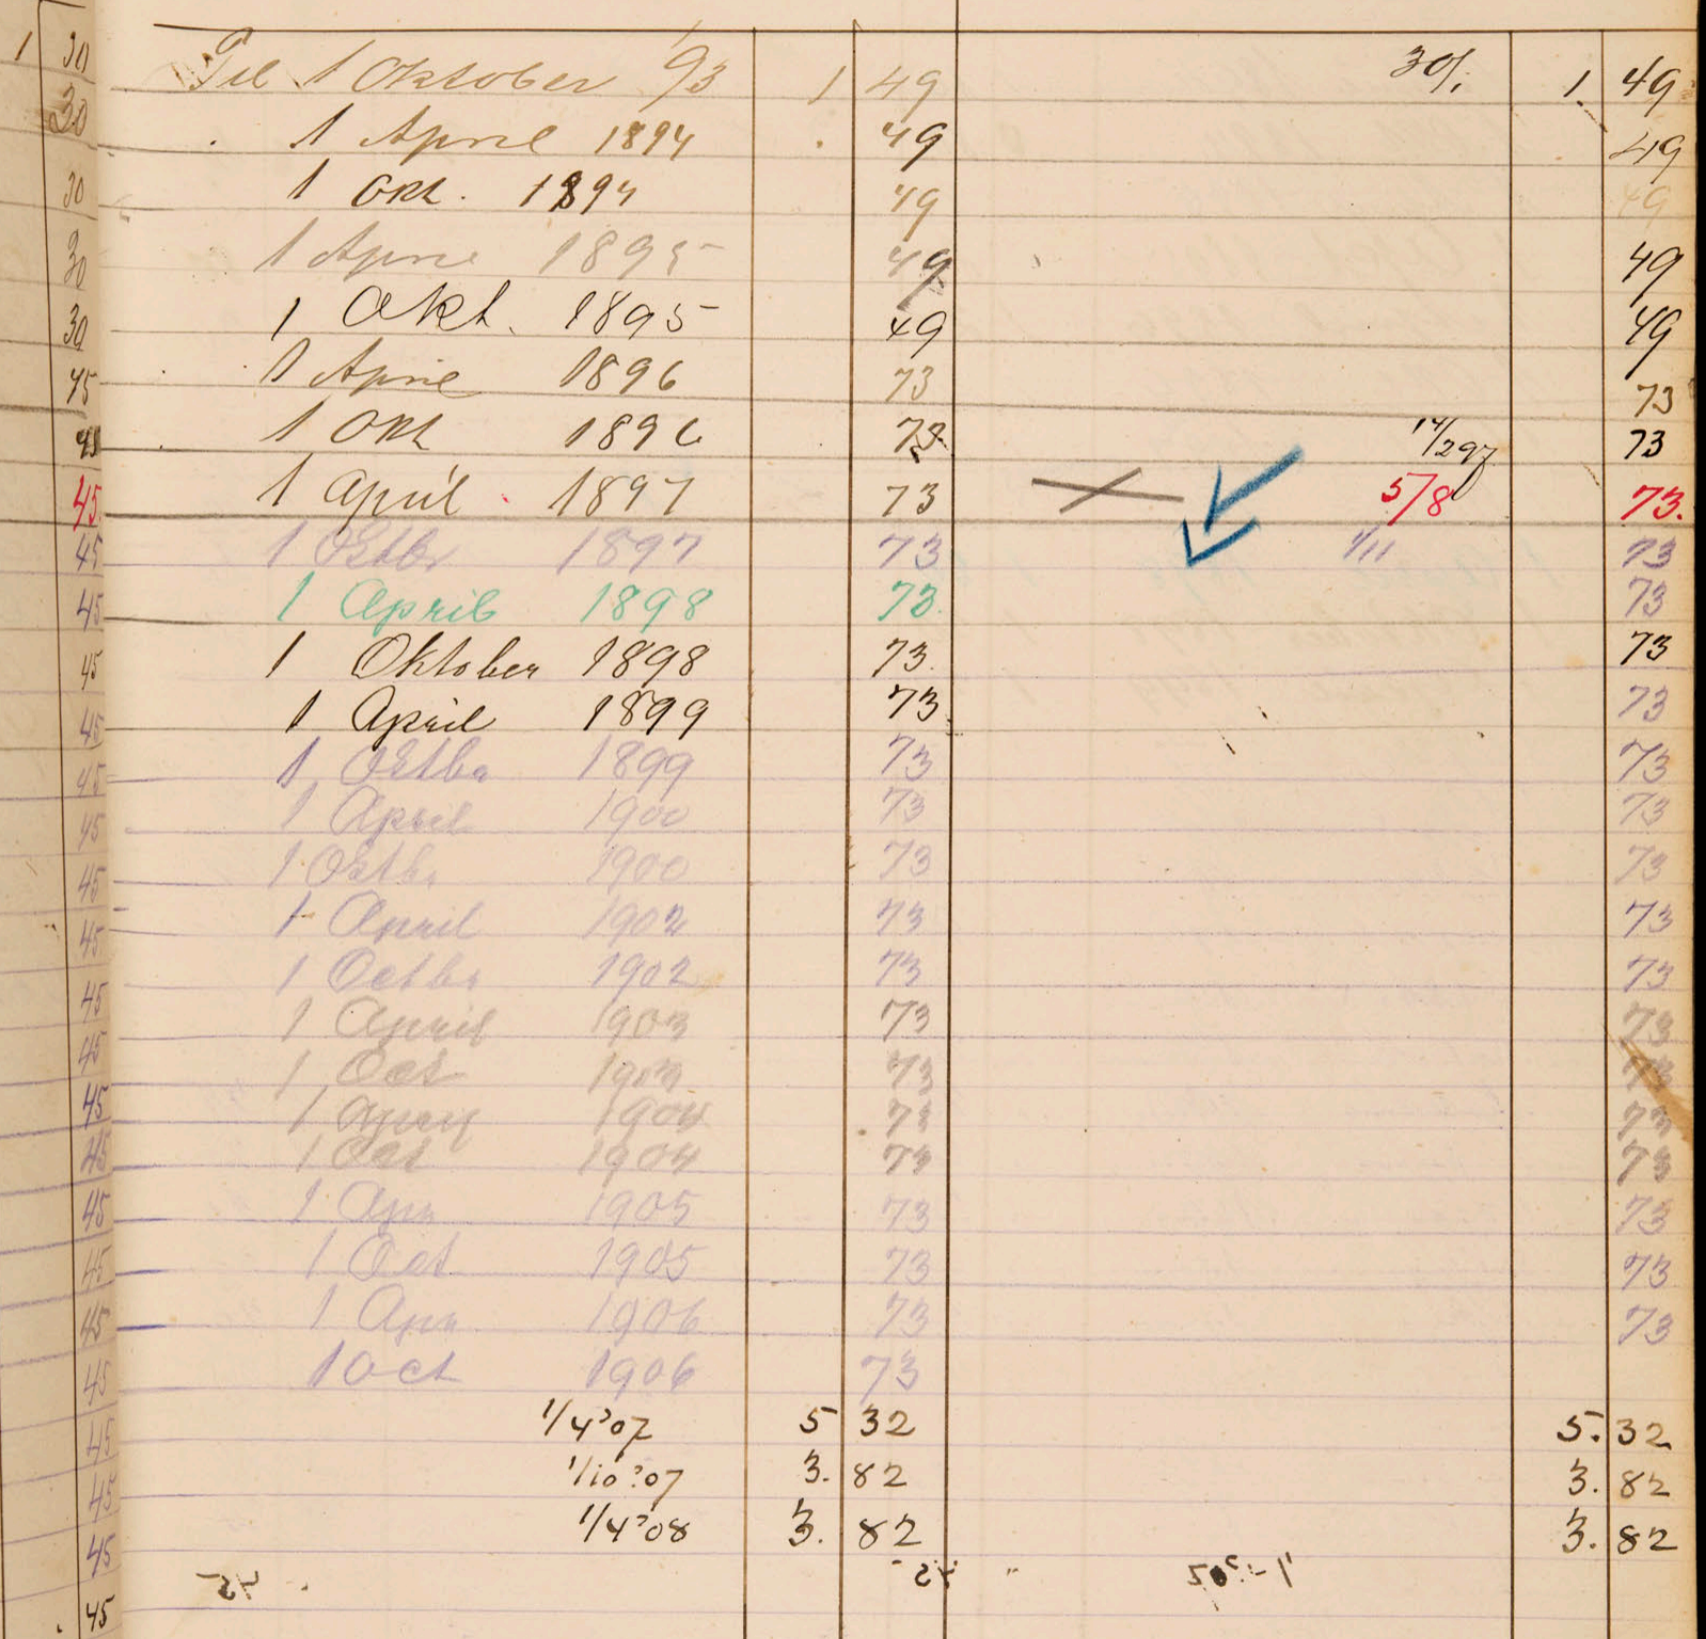 1 30 Til 1 Oktober 93 1 49 30/. 1 49
30 1 April 1894 49 49
30 1 Okt. 1894 49 49
30 1 April 1895 49 49
30 1 Okt. 1895 49 49
45 1 April 1896 73 73
45 1 Okt 1896 73 14/297 73
45. 1 April 1897 73 5/8 73.
45 1 Octbr 1897 73 1/11 73
45 1 April 1898 73. 73
45 1 Oktober 1898 73. 73
45 1 April 1899 73 73
45 1 Octbr 1899 73 73
45 1 April 1900 73 73
45 1 Octbr 1900 73 73
45 1 April 1902 73 73
45 1 Octbr 1902 73 73
45 1 April 1903 73 73
45 1 Oct 1903 73 73
45 1 April 1904 73 73
45 1 Oct 1904 73 73
45 1 Apr 1905 73 73
45 1 Oct 1905 73 73
45 1 Apr 1906 73 73
45 1 Oct 1906 73
45 1/4 '07 5 32 5. 32
45 1/10 '07 3. 82 3. 82
45 1/4 '08 3. 82 3. 82
45